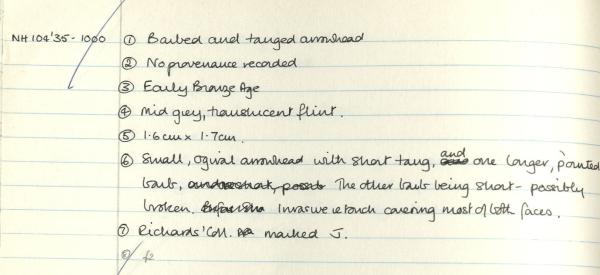 NH 104'35 - 1000 ① Barbed and tanged arrowhead
② No provenance recorded
③ Early Bronze Age
④ Mid grey, translucent flint.
⑤ 1.6cm x 1.7cm.
⑥ Small, ogival arrowhead with short tang, and one longer, pointed
barb, The other barb being short - possibly
broken. Invasive retouch covering most of both faces.
⑦ Richards' Coll. marked J.
⑧